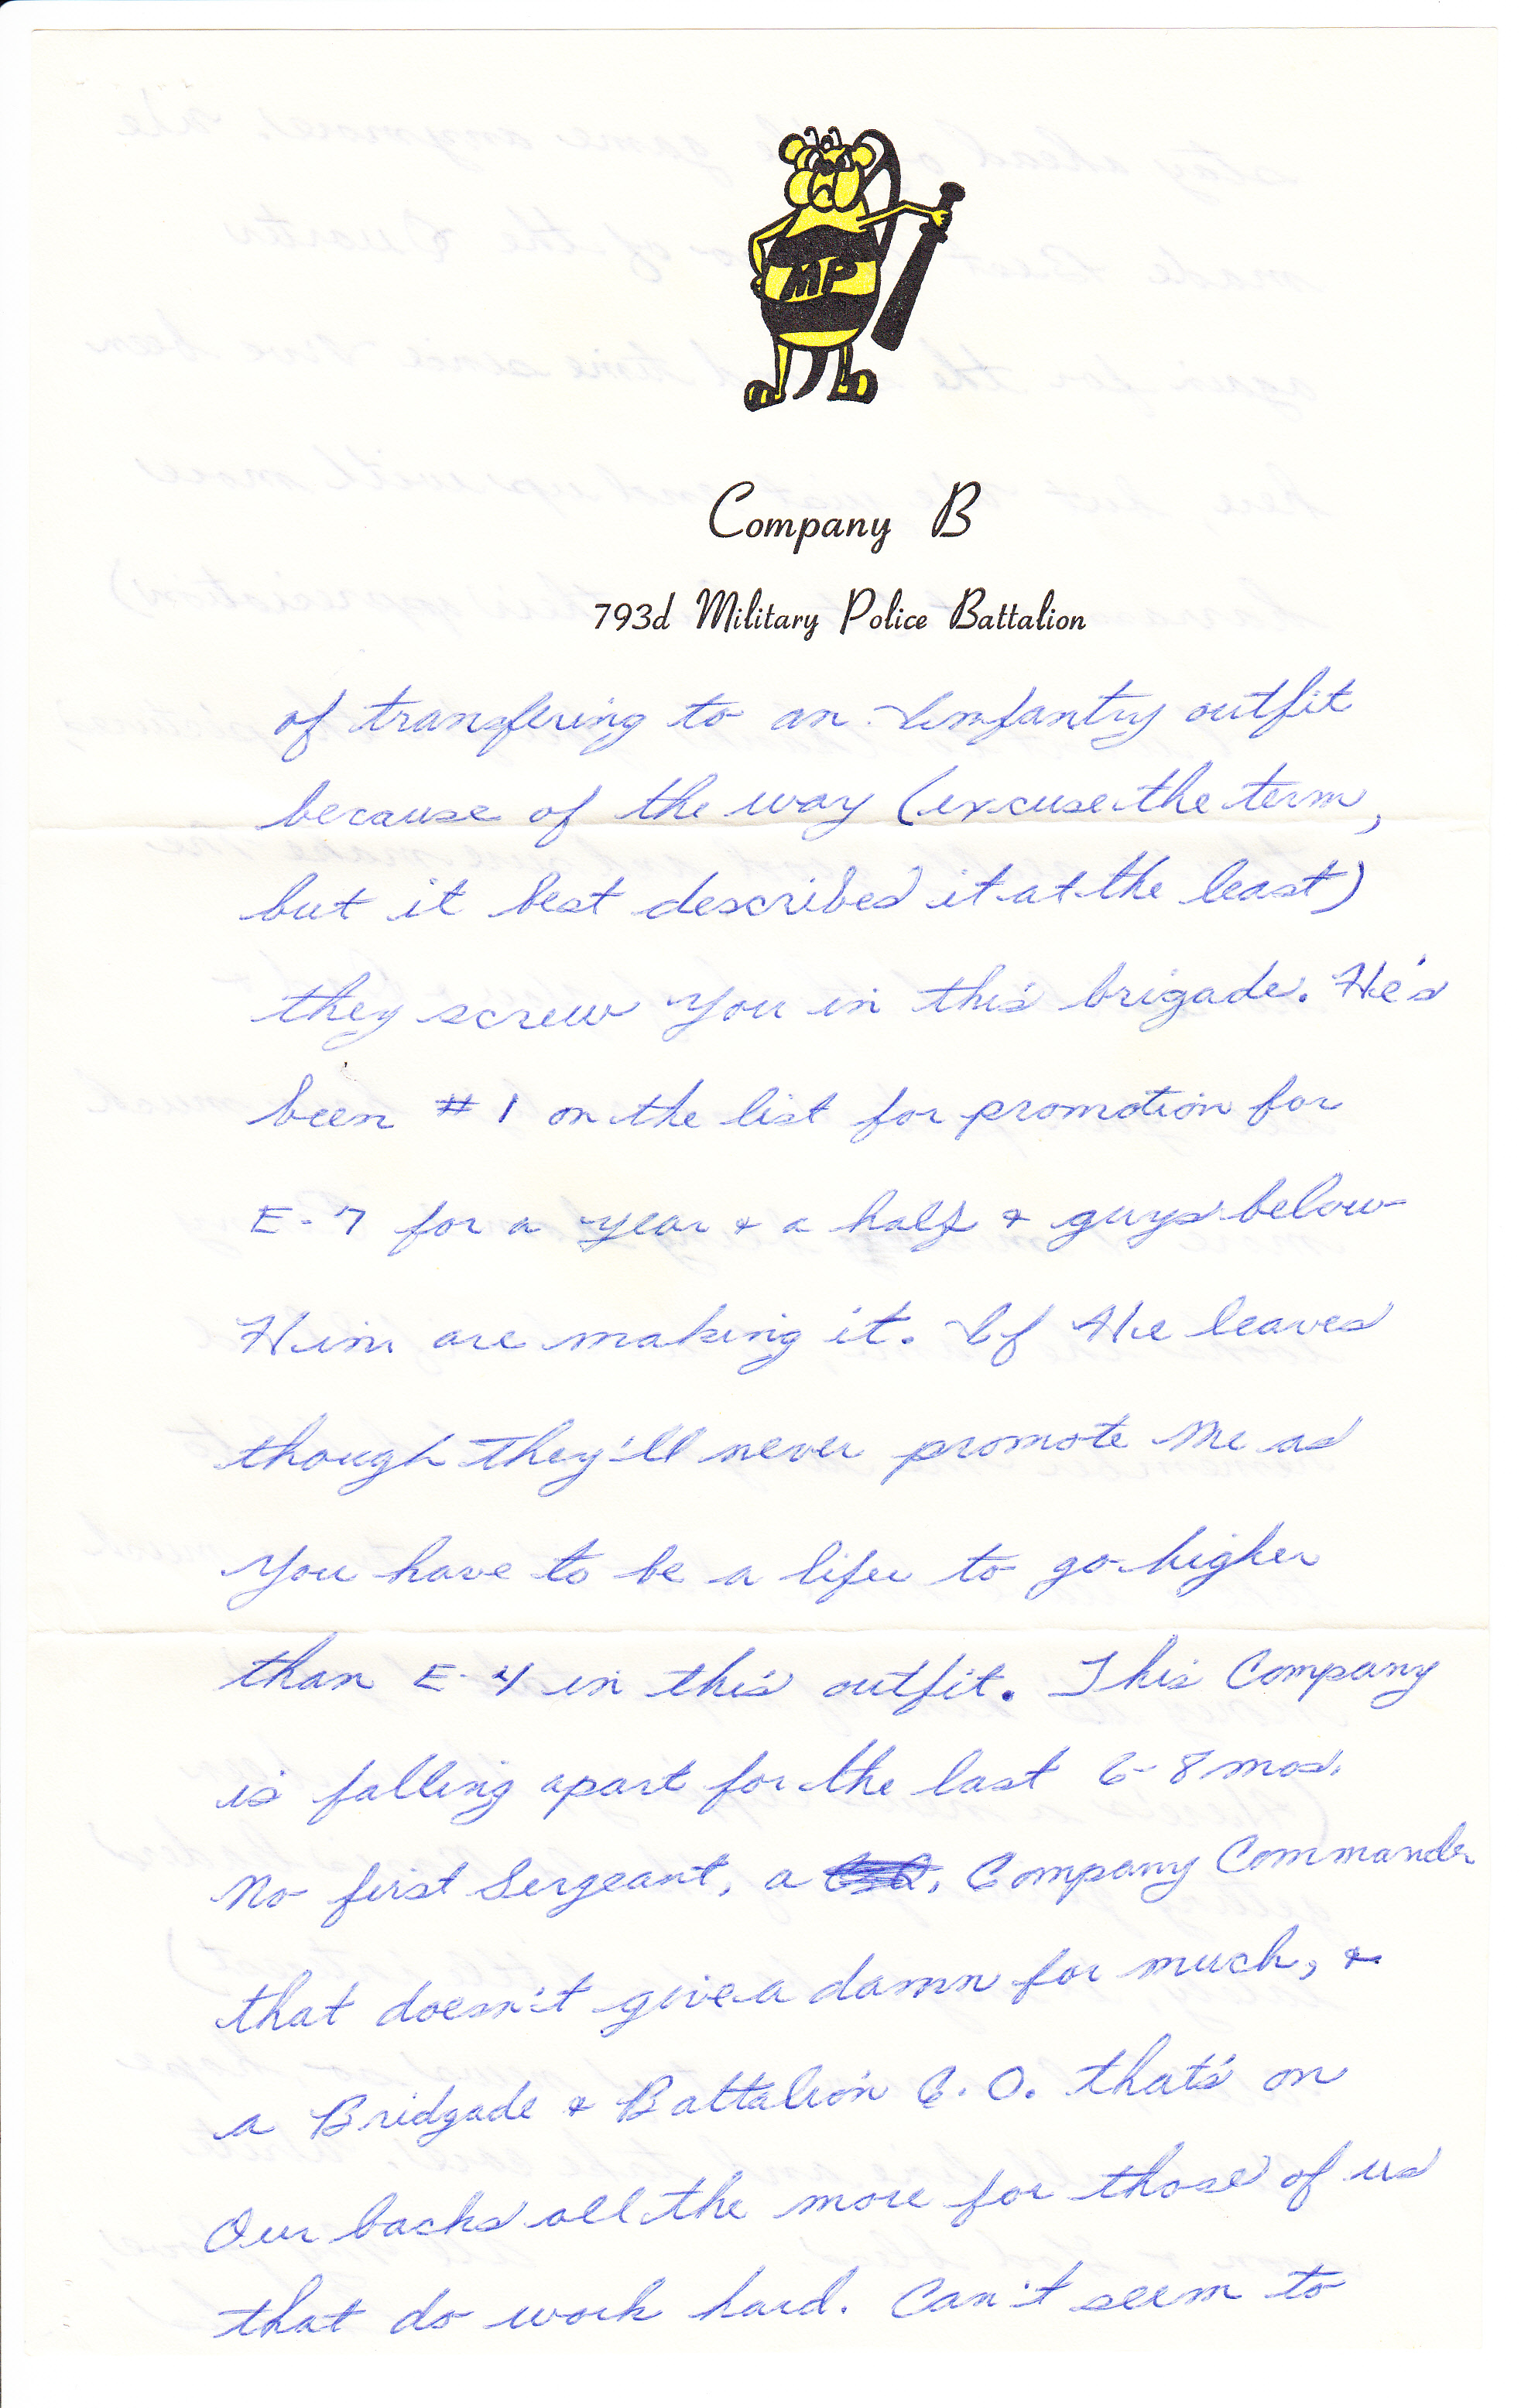 MP
Company B
793d Military Police Battalion
of transfering to an Infantry outfit
because of the way (excuse the term,
but it best described it at the least)
they screw you in this brigade. He's
been #1 on the list for promotion for
E-7 for a year & a half & guys below
Him are making it. If He leaves
though they'll never promote me as
you have to be a lifer to go higher
than E-4 in this outfit. This Company
is falling apart for the last 6-8 mos.
No first Sergeant, a Company Commander
that doesn't give a damn for much, &
a Bridgade & Battalion C.O. that's on
Our backs all the more for those of us
that do work hard. Can't seem to